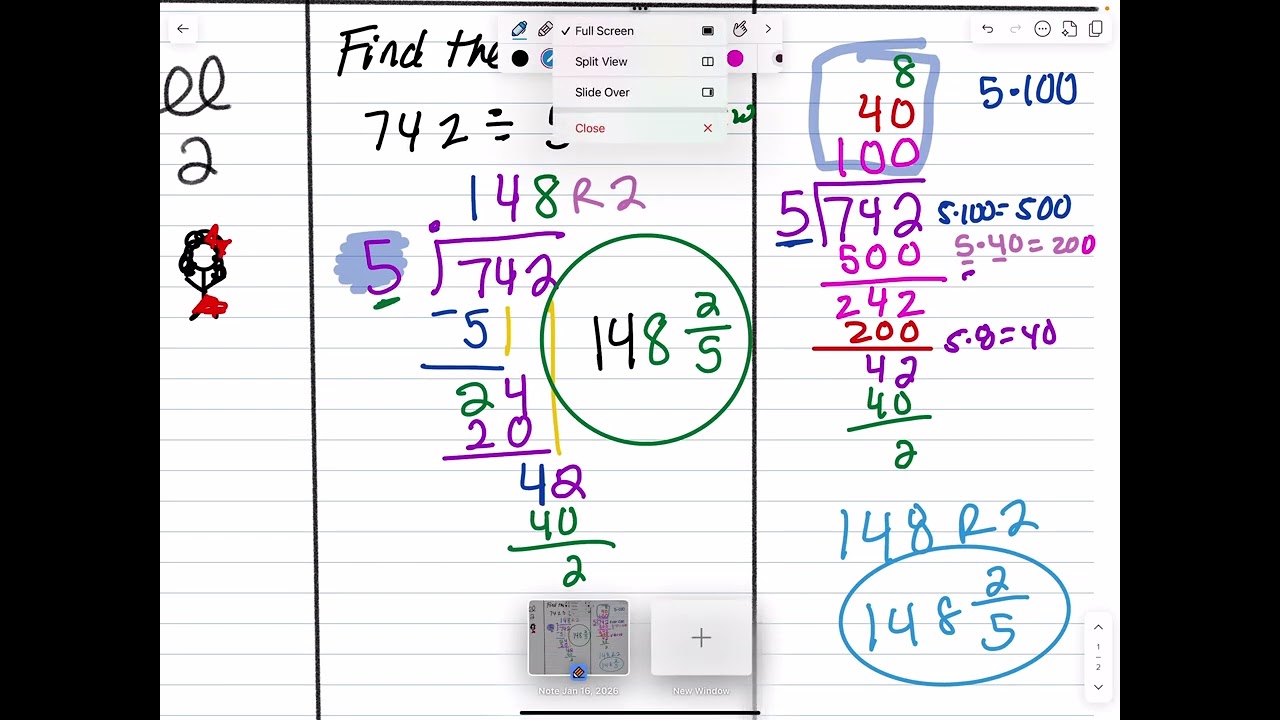 ll
2
Find the
742 ÷ 5
148 R2
5 742
-5
24
20
42
40
2
148 2/5
Full Screen
Split View
Slide Over
Close
8
40
100
5 742
500
242
200
42
40
2
5·100
5·100=500
5·40=200
5·8=40
148 R2
148 2/5
Note Jan 16, 2026
New Window
1
2